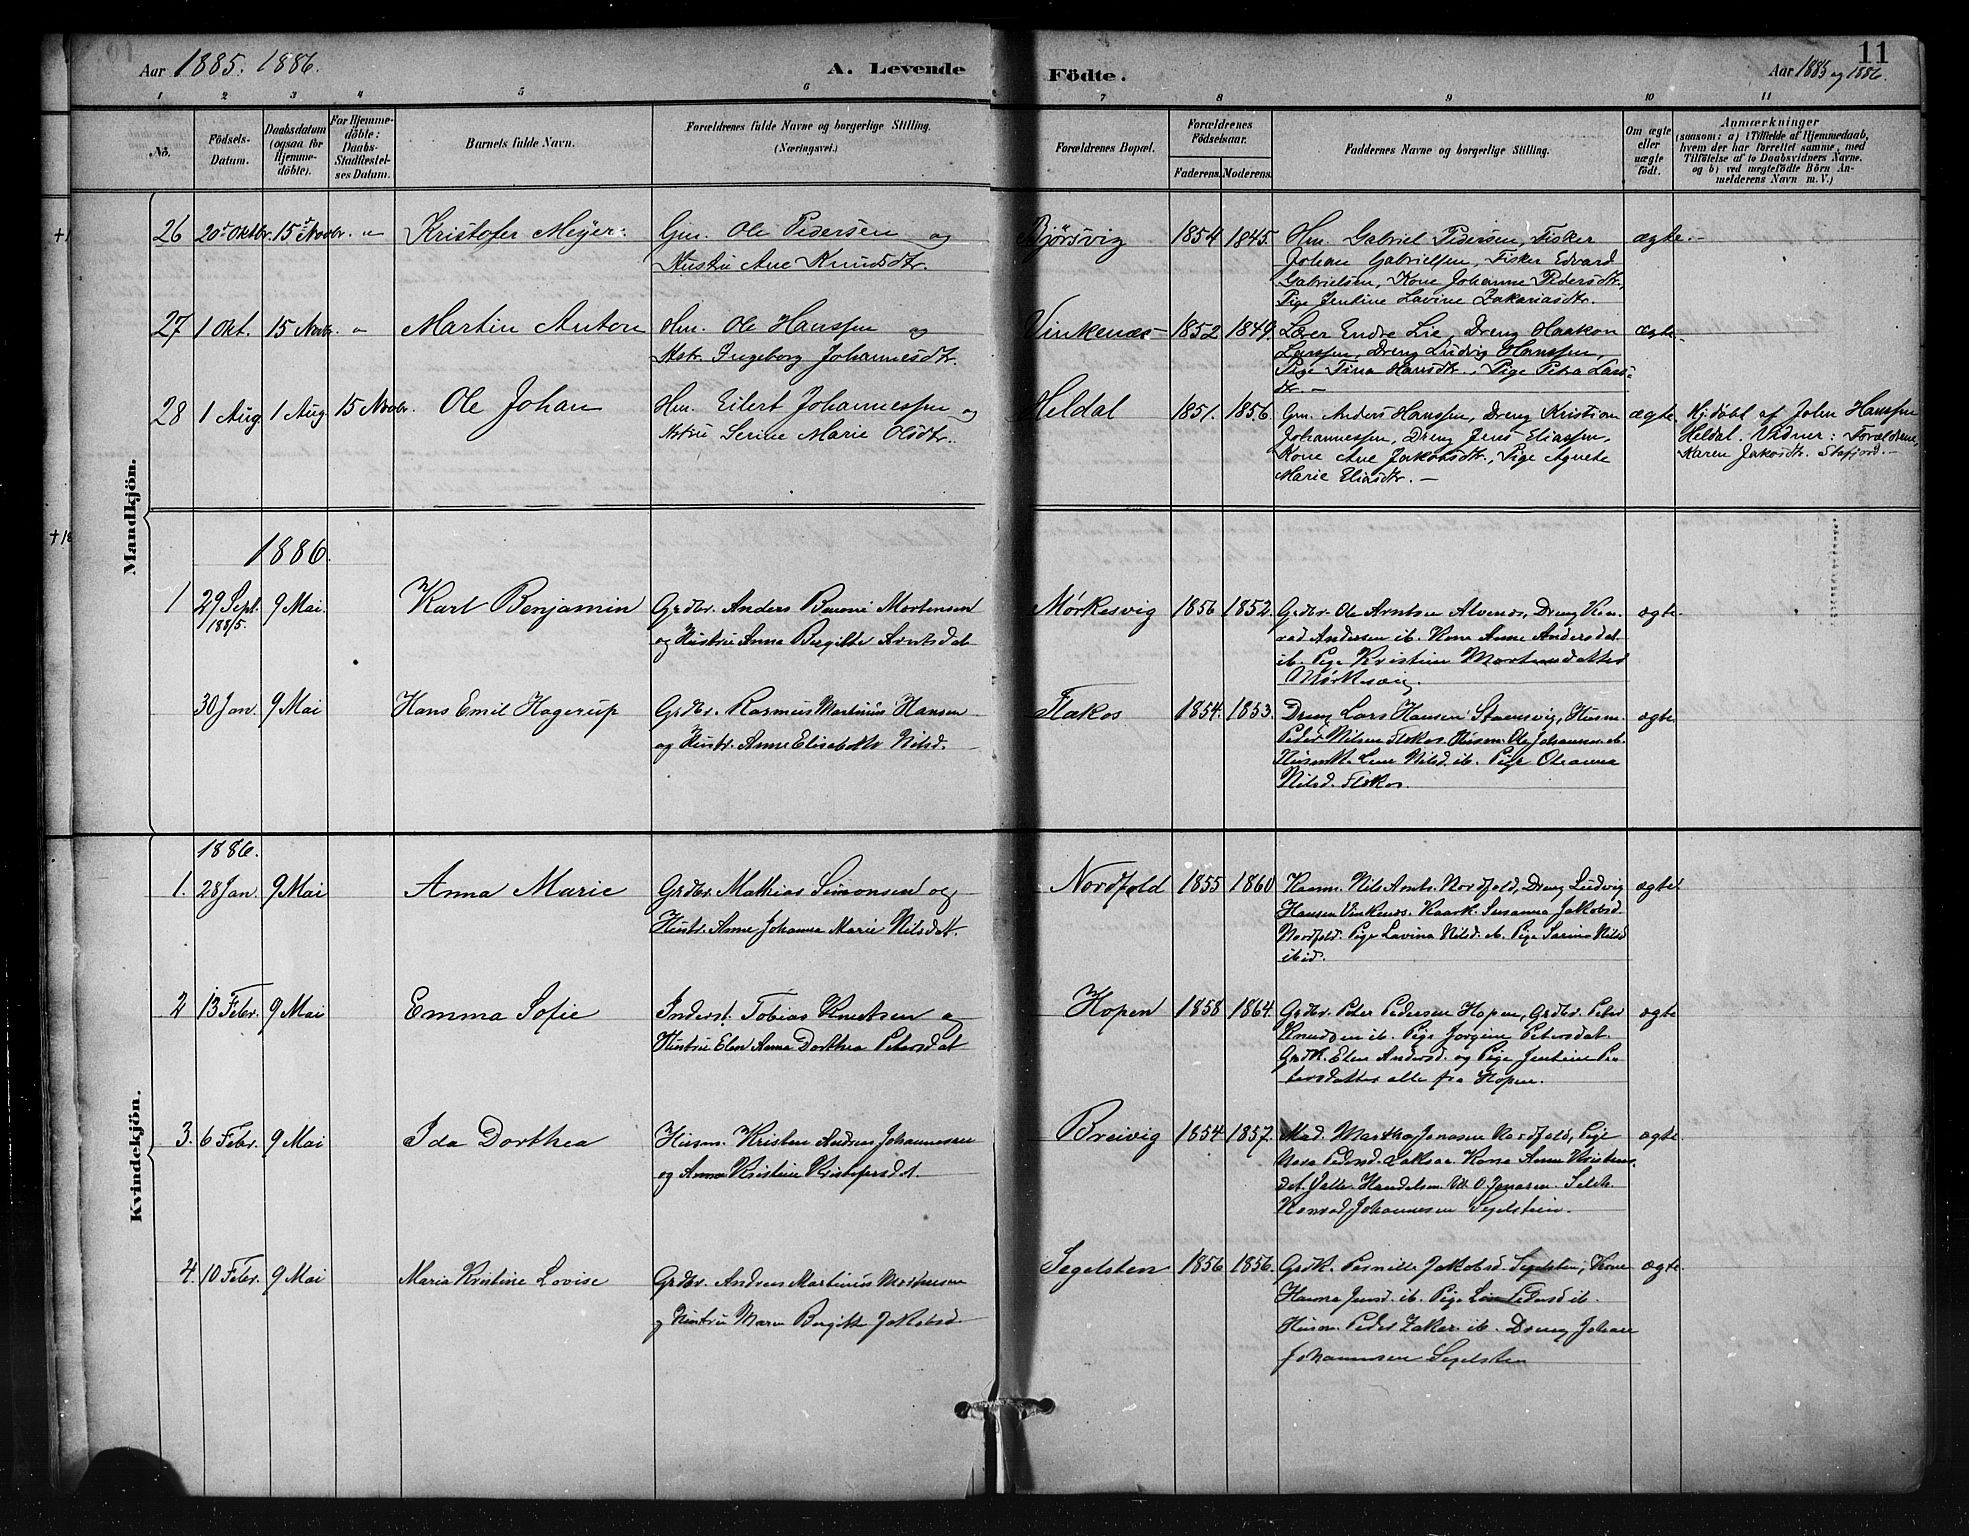 Aar 1885. 1886.
A. Levende
Födte.
Aar 1885 og 1886.
11
1 2 3 4 5 6 7 8 9 10 11
No.
Födsels-
Datum.
Daabsdatum
(ogsaa for
Hjemme-
döbte).
For Hjemme-
döbte:
Daabs-
Stadfæstel-
ses Datum.
Barnets fulde Navn.
Forældrenes fulde Navne og borgerlige Stilling.
(Næringsvei.)
Forældrenes Bopæl.
Forældrenes
Födselsaar.
Faderens. Moderens.
Faddernes Navne og borgerlige Stilling.
Om ægte
eller
uægte
födt.
Anmærkninger
(saasom: a) i Tilfælde af Hjemmedaab,
hvem der har forrettet samme, med
Tilföielse af to Daabsvidners Navne.
og b) ved uægtefödte Börn An-
melderens Navn m. V.)
Mandkjön.
26 20de Oktbr. 15de Novbr. " Kristofer Meyer. Gm. Ole Pedersen og
Hustru Ane Knudsdtr.
Bjørsvig 1854 1845. Hm. Gabriel Pedersen, Fisker
Johan Gabrielsen, Fisker Edvard
Gabrielsen, Kone Johanne Pedersdtr,
Pige Jentine Lavine Zakariasdtr.
ægte.
27 1 Okt. 15 Novbr. " Martin Anton Hm. Ole Hanssen og
Hstr. Ingeborg Johannesdtr.
Vinkenæs 1852 1849. Lærer Endre Lie, Dreng Haakon
Larssen, Dreng Ludvig Hanssen,
Pige Tina Hansdtr., Pige Petra Lars-
dtr.
ægte.
28 1 Aug. 1 Aug. 15 Novbr. Ole Johan Hm. Eilert Johannessen og
Hstru Serine Marie Olsdtr.
Heldal 1851. 1856. Gm. Anders Hanssen, Dreng Kristian
Johannessen, Dreng Jens Eliassen,
Kone Ane Jakobsdtr., Pige Agnete
Marie Eliasdtr.
ægte. Hj.døbt af John Hanssen
Heldal. Vidner: Forældrene,
Karen Jakobsdtr. Stafjord.
1886.
1 29 Sept. 1885. 9 Mai. Karl Benjamin Grdbr. Anders Benoni Mortensen
og Hustru Anna Bergitte Arntsdat.
Mørkesvig 1856 1852. Grdbr. Ole Arntsen Alvenes, Dreng Kon-
rad Andersen ib. Kone Anne Andersdat.
ib. Pige Kristine Mortensdatter
Mørkesvig.
ægte
30 Jan. 9 Mai Hans Emil Hagerup Grdbr. Rasmus Martinus Hansen
og Hustr. Anne Elisabeth Nilsd.
Flakos 1854. 1853. Dreng Lars Hansen Husm.
Peder Nilsen Flakos. Husm. Ole Johannsen ib.
Husmk. Lene Nilsd. ib. Pige Oleanna
Nilsd. Flakos.
ægte
Kvindekjön.
1886.
1. 28 Jan. 9 Mai Anna Marie Grdbr. Mathias Simonsen og
Hustr. Anne Johanna Marie Nilsdatt.
Nordfold 1855 1860 Nils Arnts. Nordfold, Dreng Ludvig
Hansen Vinkenes. Susanna Jakobsd.
Nordfold. Pige Lavina Nilsd. ib. Pige Sarina Nilsd
ibid.
ægte
2 13 Febr. 9 Mai Emma Sofie Inderst. Tobias Knutsen og
Hustru Elen Anna Dorthea Petersdat
Hopen 1858 1864. Grdbr. Peter Pedersen Hopen, Grdbr. Peter
Knudsen ib. Pige Jorgine Petersdat.
Grdk. Elen Andersd. og Pige Jentine Pe-
tersdatter alle fra Hopen.
ægte
3. 6 Febr. 9 Mai Ida Dorthea Husm. Kristen Andreas Johannesen
og Anna Kristine Kristofersdat.
Breivig 1854 1857. Mad. Martha Jonasen Nordfold, Pige
Pedersd. Laksaa. Kone Anne Kristens-
dat. Handelsm. O. Jonasen.
Konrad Johannesen Segelstein.
ægte
4. 10 Febr. 9 Mai Maria Kristine Lovise Grdbr. Andreas Martinus Mortensen
og Hustru Maren Bergitte Jakobsd.
Segelsten 1856 1856. Grdk. Pernille Jakobsd. Segelsten, Kone
Hanna Jensd. ib. Pige Pedersd. ib.
Husm. Peder Zakar. ib. Dreng Johan
Johannesen Segelsten
ægte